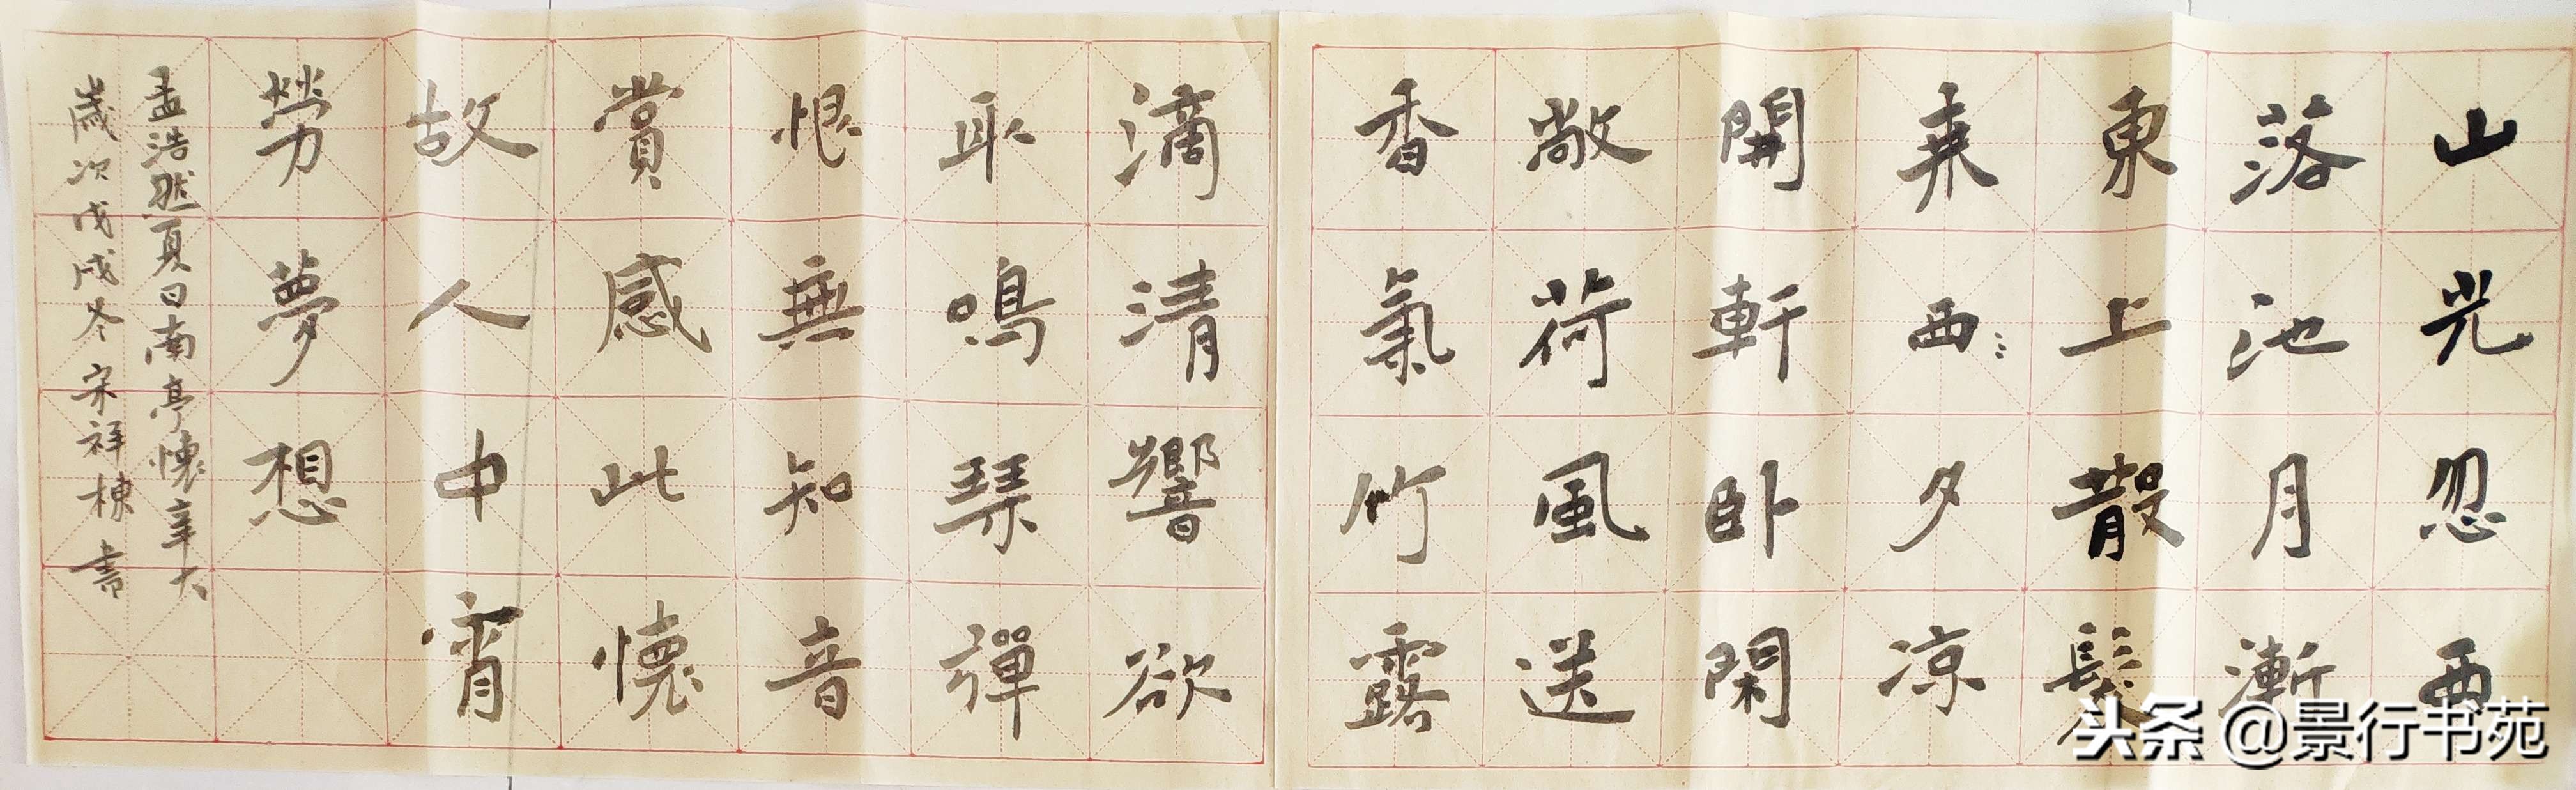 山光忽西
落池月漸
東上散髮
乘西夕凉
開軒卧閑
敞荷風送
香氣竹露
滴清響欲
取鳴琴彈
恨無知音
賞感此懷
故人中宵
勞夢想
孟浩然夏日南亭懷辛大
歲次戊戌冬宋祥棟書
头条 @景行书苑